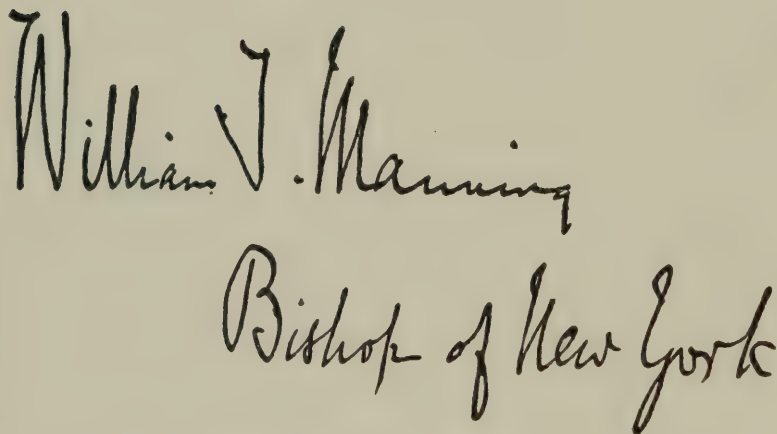 William T. Manning
Bishop of New York